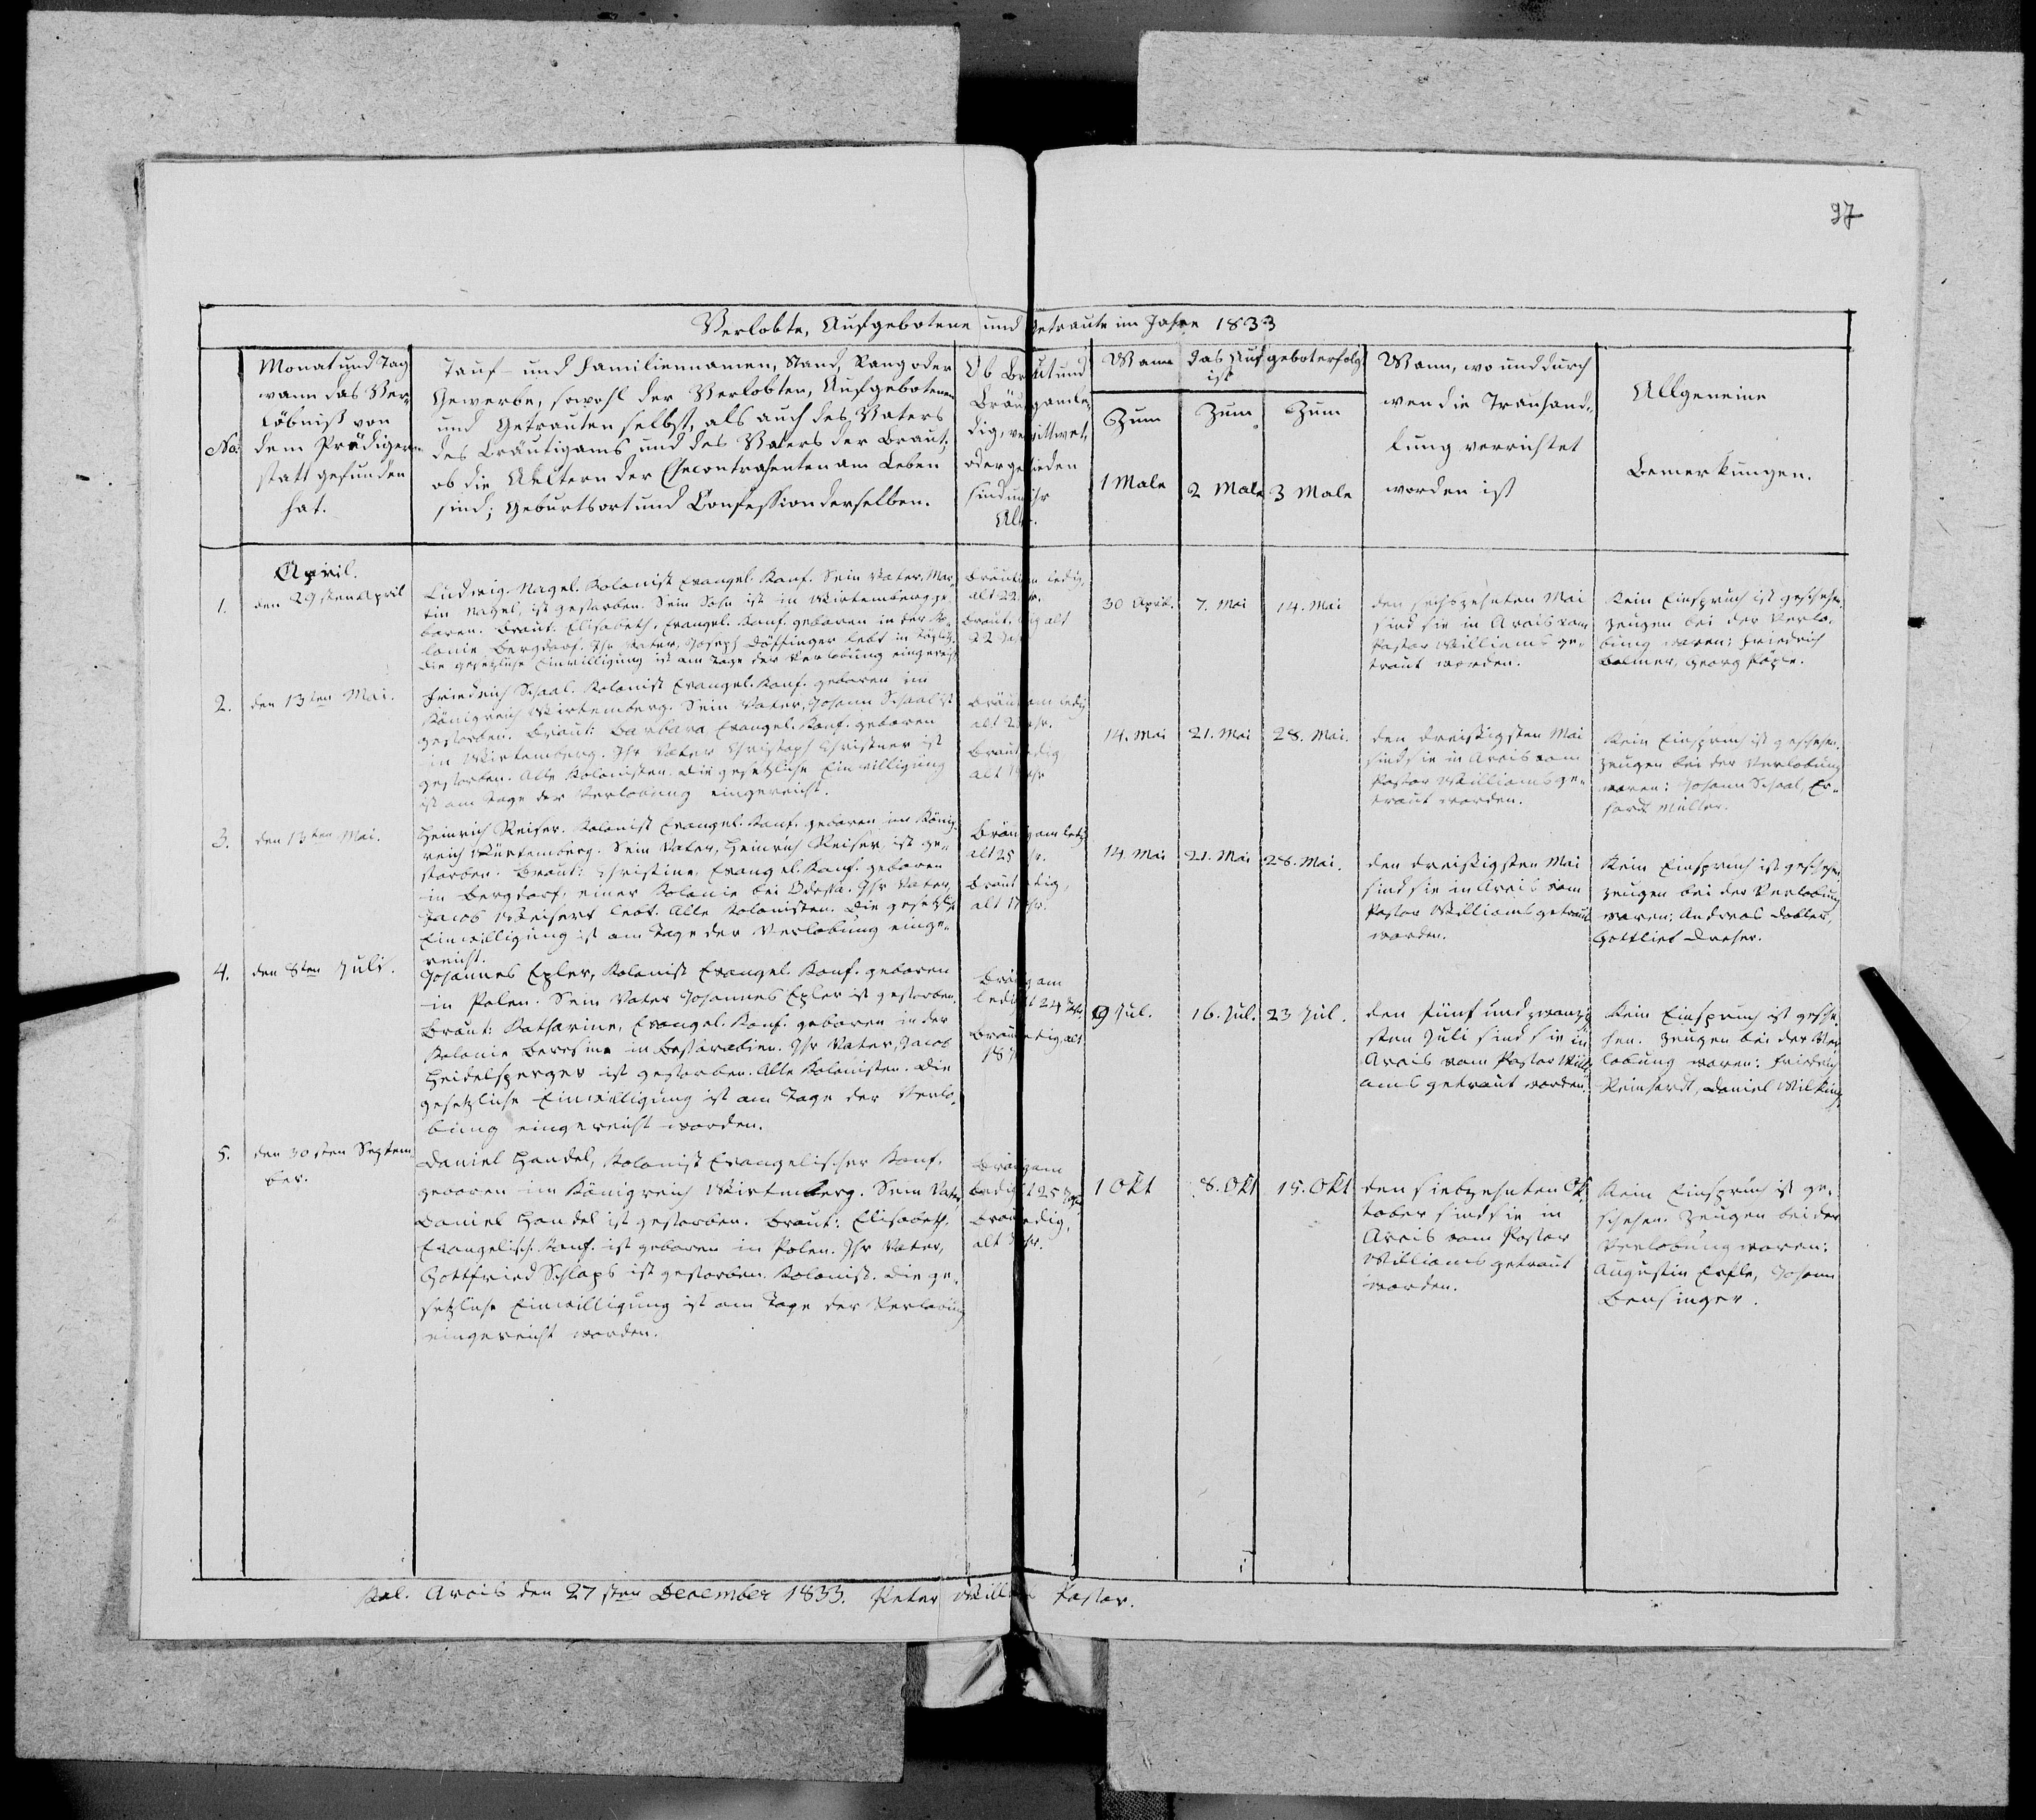 97
Verlobte, Aufgebotene und Getraute im Jahre 1833
No:
Monat und Tag
wann das Ver-
löbniß von
dem Prediger
statt gefunden
hat.
Tauf- und Familiennamen, Stand, Rang oder
Gewerbe, sowohl der Verlobten, Aufgebotenen
und Getrauten selbst, als auch des Vaters
des Bräutigams und des Vaters der Braut;
ob die Aeltern der Ehecontrahenten am Leben
sind; Geburtsort und Confession derselben.
Ob Braut und
Bräutigam le-
dig, verwittwet,
oder geschieden
sind und ihr
Alter.
Wann das Aufgebot erfolgt
ist
Zum
1 Male
Zum
2 Male
Zum
3 Male
Wann, wo und durch
wen die Trauhand-
lung verrichtet
worden ist
Allgemeine
Bemerkungen.
1.
April.
den 29sten April
Ludwig Nagel. Kolonist Evangel. Konf. Sein Vater, Mar-
tin Nagel, ist gestorben. Sein Sohn ist in Wirtemberg ge-
boren. Braut: Elisabeth, Evangel. Konf. geboren in der Ko-
lonie Bergdorf. Ihr Vater, Joseph Döffinger lebt in
Die gesetzliche Einwilligung ist am Tage der Verlobung eingereicht
ledig,
alt 22
alt
22
30 April.
7. Mai
14. Mai
den sechszehnten Mai
sind sie in Arcis vom
Pastor Williams ge-
traut worden.
Kein Einspruch ist geschehen.
Zeugen bei der Verlo-
bung waren: Friedrich
Bolmer, Georg
2.
den 13ten Mai.
Friedrich Schaal. Kolonist Evangel. Konf. geboren im
Königreich Wirtemberg. Sein Vater, Johann Schaal ist
gestorben. Braut: Barbara Evangel. Konf. geboren
in Wirtemberg. Ihr Vater Christoph Christner ist
gestorben. Alle Kolonisten. Die gesetzliche Einwilligung
ist am Tage der Verlobung eingereicht.
ledig
alt
alt
14. Mai
21. Mai
28. Mai.
den dreissigsten Mai
sind sie in Arcis vom
Pastor Williams ge-
traut worden.
Kein Einspruch ist geschehen.
Zeugen bei der Verlobung
waren: Johann Schaal, Er-
hard Müller.
3.
den 13ten Mai.
Heinrich Reiser. Kolonist Evangel. Konf. geboren im König-
reich Würtemberg. Sein Vater, Heinrich Reiser, ist ge-
storben. Braut: Christine, Evangel. Konf. geboren
in Bergdorf, einer Kolonie bei Odessa. Ihr Vater,
Jacob lebt. Alle Kolonisten. Die gesetzliche
Einwilligung ist am Tage der Verlobung einge-
reicht.
alt 25
alt 17
14. Mai
21. Mai
28. Mai.
den dreissigsten Mai
sind sie in Arcis vom
Pastor Williams getraut
worden.
Kein Einspruch ist geschehen.
Zeugen bei der Verlobung
waren: Andreas Dobler,
Gottlieb Dreher.
4.
den 8ten Juli.
Johannes Exler, Kolonist Evangel. Konf. geboren
in Polen. Sein Vater Johannes Exler ist gestorben.
Braut: Katharine, Evangel. Konf. geboren in der
Kolonie Beresina in Bessarabien. Ihr Vater, Jacob
Heidelsperger ist gestorben. Alle Kolonisten. Die
gesetzliche Einwilligung ist am Tage der Verlo-
bung eingereicht worden.
24
alt
18
9 Jul.
16. Jul.
23 Jul.
den fünf und zwanzig-
sten Juli sind sie in
Arcis vom Pastor Willi-
ams getraut worden.
Kein Einspruch ist gesche-
hen. Zeugen bei der Ver-
lobung waren: Friedrich
Reinhardt, Daniel
5.
den 30sten Septem-
ber.
Daniel Handel, Kolonist Evangelischer Konf.
geboren im Königreich Wirtemberg. Sein Vater,
Daniel Handel ist gestorben. Braut: Elisabeth,
Evangelisch. Konf. ist geboren in Polen. Ihr Vater,
Gottfried Schlaps ist gestorben. Kolonist. Die ge-
setzliche Einwilligung ist am Tage der Verlobung
eingereicht worden.
25
alt
1 Okt
8. Okt
15. Okt
den siebzehnten Ok-
tober sind sie in
Arcis vom Pastor
Williams getraut
worden.
Kein Einspruch ist ge-
schehen. Zeugen bei der
Verlobung waren:
Augustin Johann
Bensinger.
Kol. Arcis den 27sten December 1833. Peter Williams Pastor.